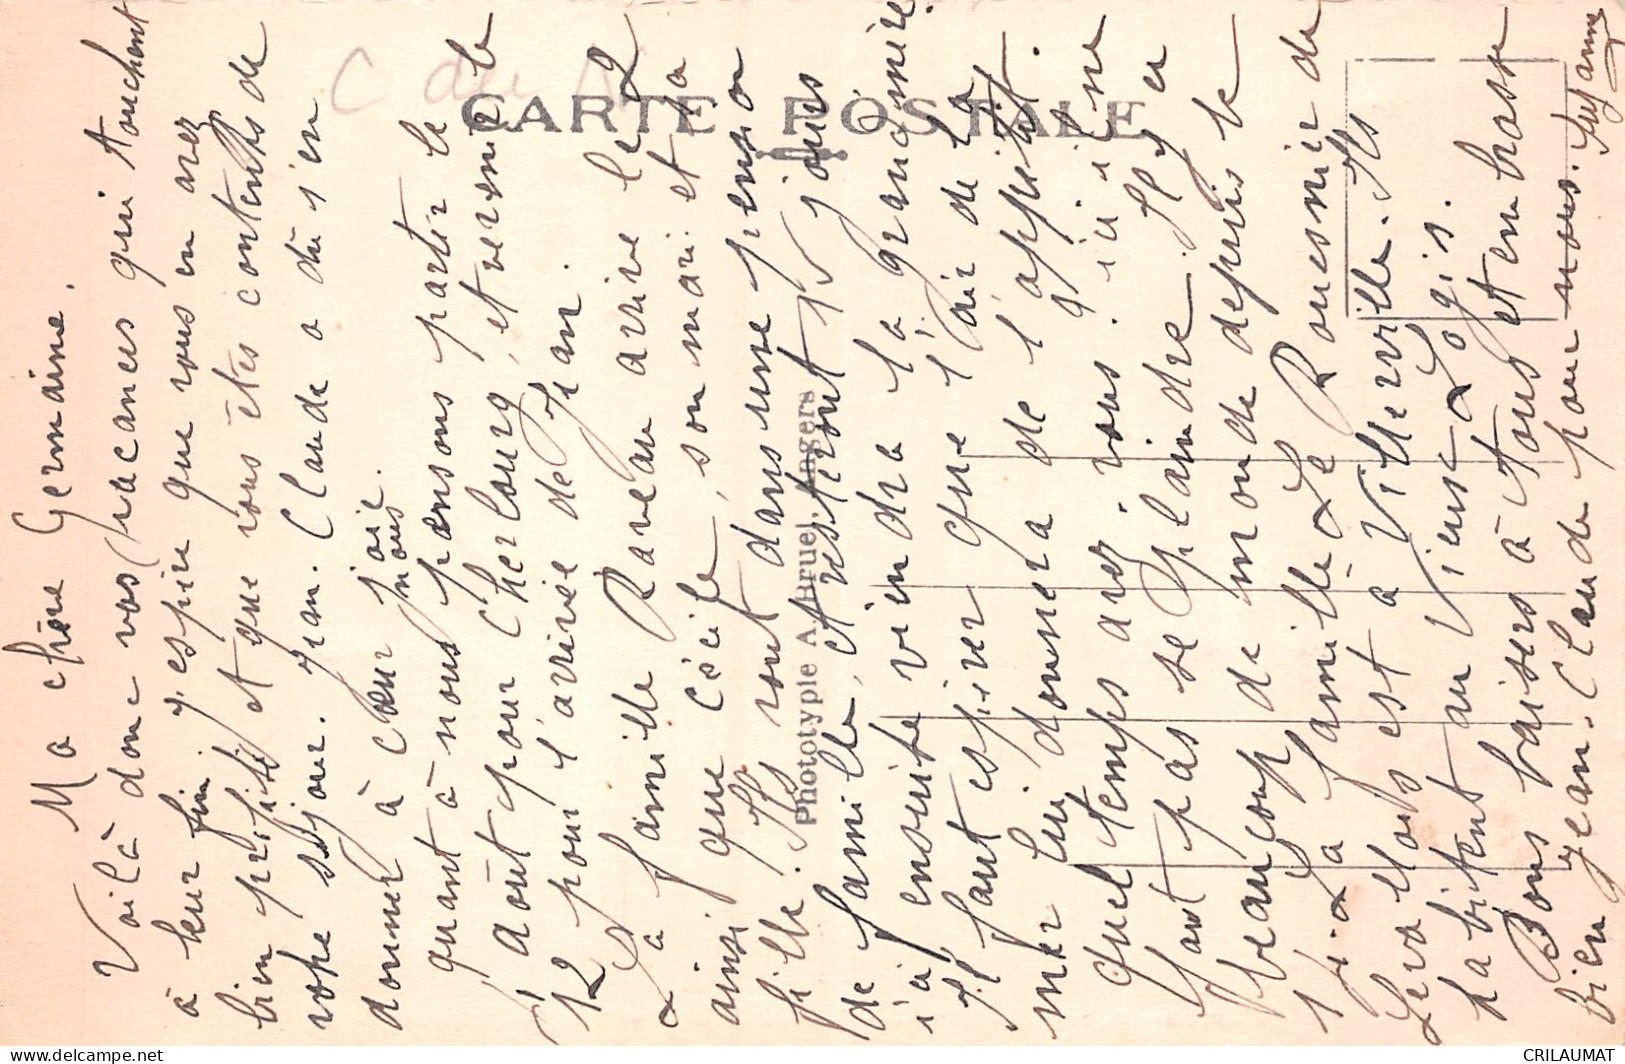 Ma chère Germaine,
Voilà donc vos vacances qui touchent
à leur fin, j'espère que vous en avez
bien profité et que vous êtes contents de
votre séjour. Jean. Claude a dû s'en
donner à cœur joie.
quant à nous nous pensons partir le
1 août pour Cherbourg, et revenir le
12 pour l'arrivée de Jean.
La famille Raveau arrive le 2
ainsi que Cécile, son mari et sa
fille. Ils vont dans une pension
de famille, et resteront 15 jours
ensuite viendra la grand mère.
ici, Il faut espérer que l'air de la
mer lui donnera de l'appétit.
Quel temps avez-vous. ici il ne
faut pas se plaindre. Il y a
beaucoup de monde depuis le
1. La famille Le Rouesnier de
Levallois est à Villerville. Ils
habitent au Vieux Logis.
Bons baisers à tous et embrasse
bien Jean. Claude pour nous. Suzanne
CARTE POSTALE
Phototypie A. Bruel, Angers
CRILAUMAT